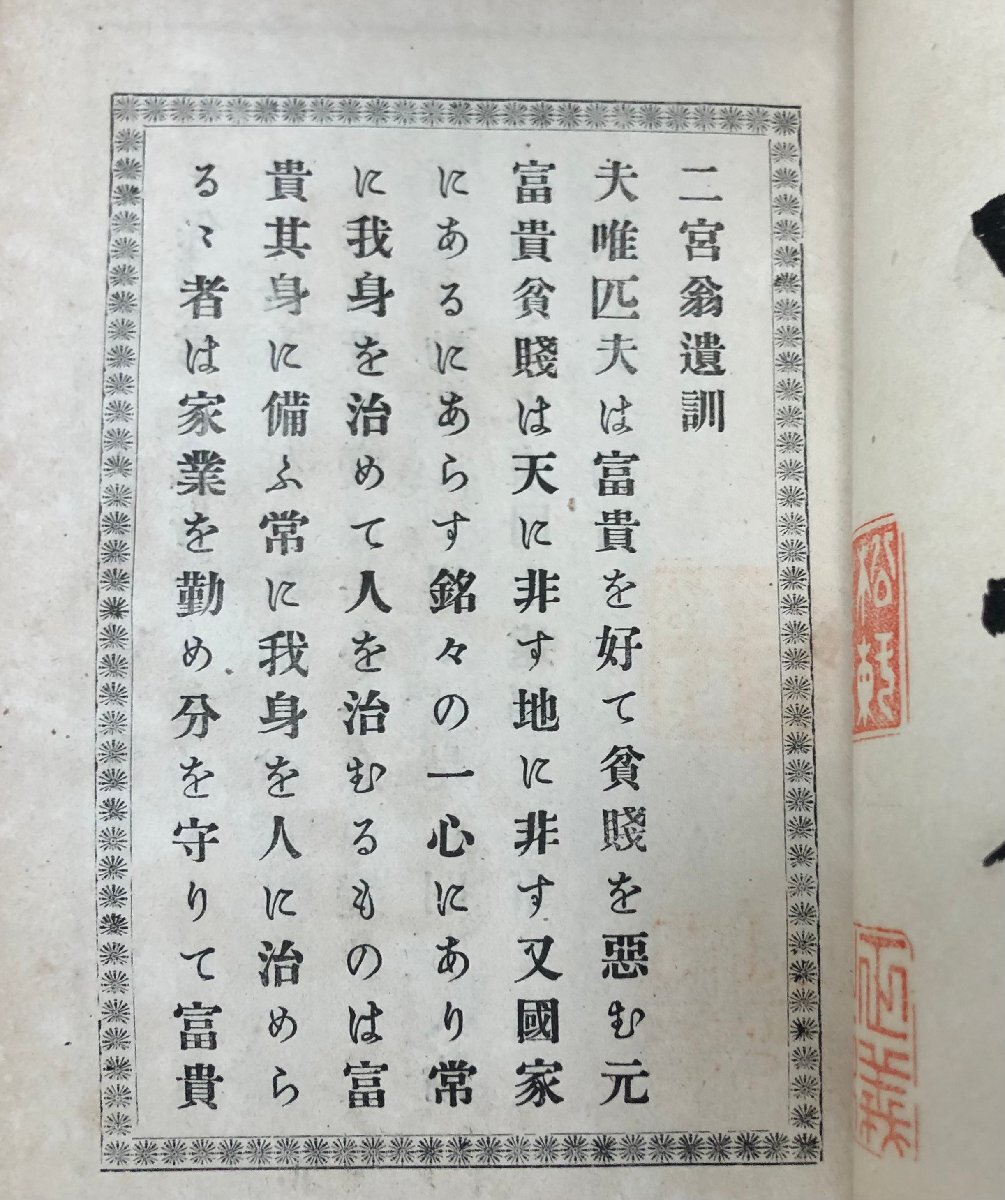 二宮翁遺訓
夫唯匹夫は富貴を好て貧賤を惡む元
富貴貧賤は天に非す地に非す又國家
にあるにあらす銘々の一心にあり常
に我身を治めて人を治むるものは富
貴其身に備ふ常に我身を人に治めら
るゝ者は家業を勤め分を守りて富貴